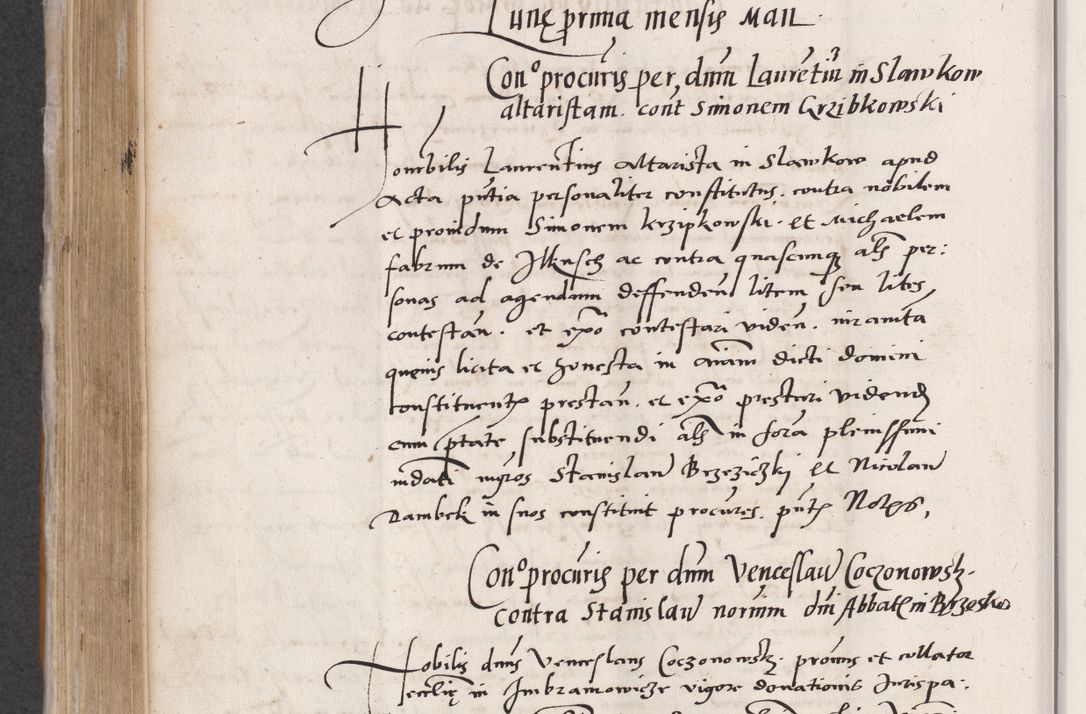 Lunę prima mensis Maii
Con° procuris per dnm Laurētiū in Slawkow
altaristam. cont Simonem Grzibkowski
Honorbilis Laurentius altarista in Slawkow apud
Acta pñtia personaliter constitutus. contra nobilem
et prouidum Simonem krzipkowski. et Michaelem
fabrum de Ilkusch ac contra quascunq₃ als per:
sonas ad agendum deffendeñ litem seu lites
contestañ. et expo contestari videñ. iuramta
queuis licita et honesta in aīam dicti domini
constituentis prestañ. et expo prestari videnđ
cum ptate substituendi als in fora plenissimi
mdati mgros Stanislaū Brzeziczki et Nicolaū
Dambek in suos constituit procures. pntƺ Notƺ,
Con° procuris per dnm Venceslaū Coczonowsk.
contra Stanislaū dni Abbatƺ in Brzesko
Nobilis dnus Venceslaus Coczonowsk. et collator
ecclię in Imbramowicze vigore donationis Iurispa: